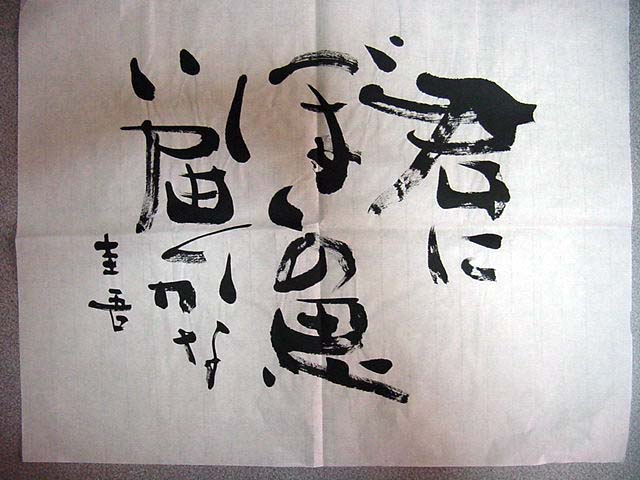 君に
ぼくの思
い届くかな
圭吾